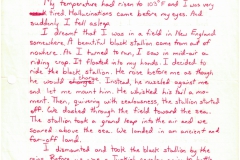 My temperature had risen to 105°F and I was very
tired. Hallucinations came before my eyes. And
suddenly I fell asleep.
I dreamt that I was in a field in New England
somewhere. A beautiful black stallion came from out of
nowhere. As I turned to run, I saw in mid-air a
riding crop. It floated into my hands. I decided to
ride the black stallion. He rose before me as though
he would charge. Instead, he nuzzled against me
and let me mount him. He whisked his tail a mo-
ment. Then, quivering with eagerness, the stallion started
off. We dashed through the field toward the sea.
The stallion took a great leap into the air and we
soared above the sea. We landed in an ancient and
far-off land.
I dismounted and took the black stallion by the